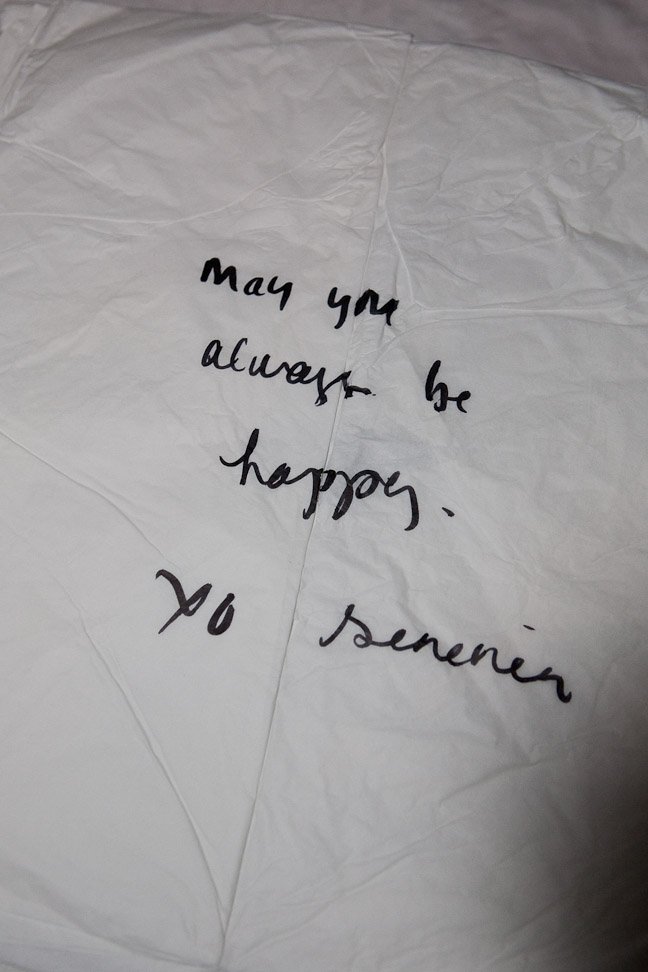 May you
always be
happy.
XO